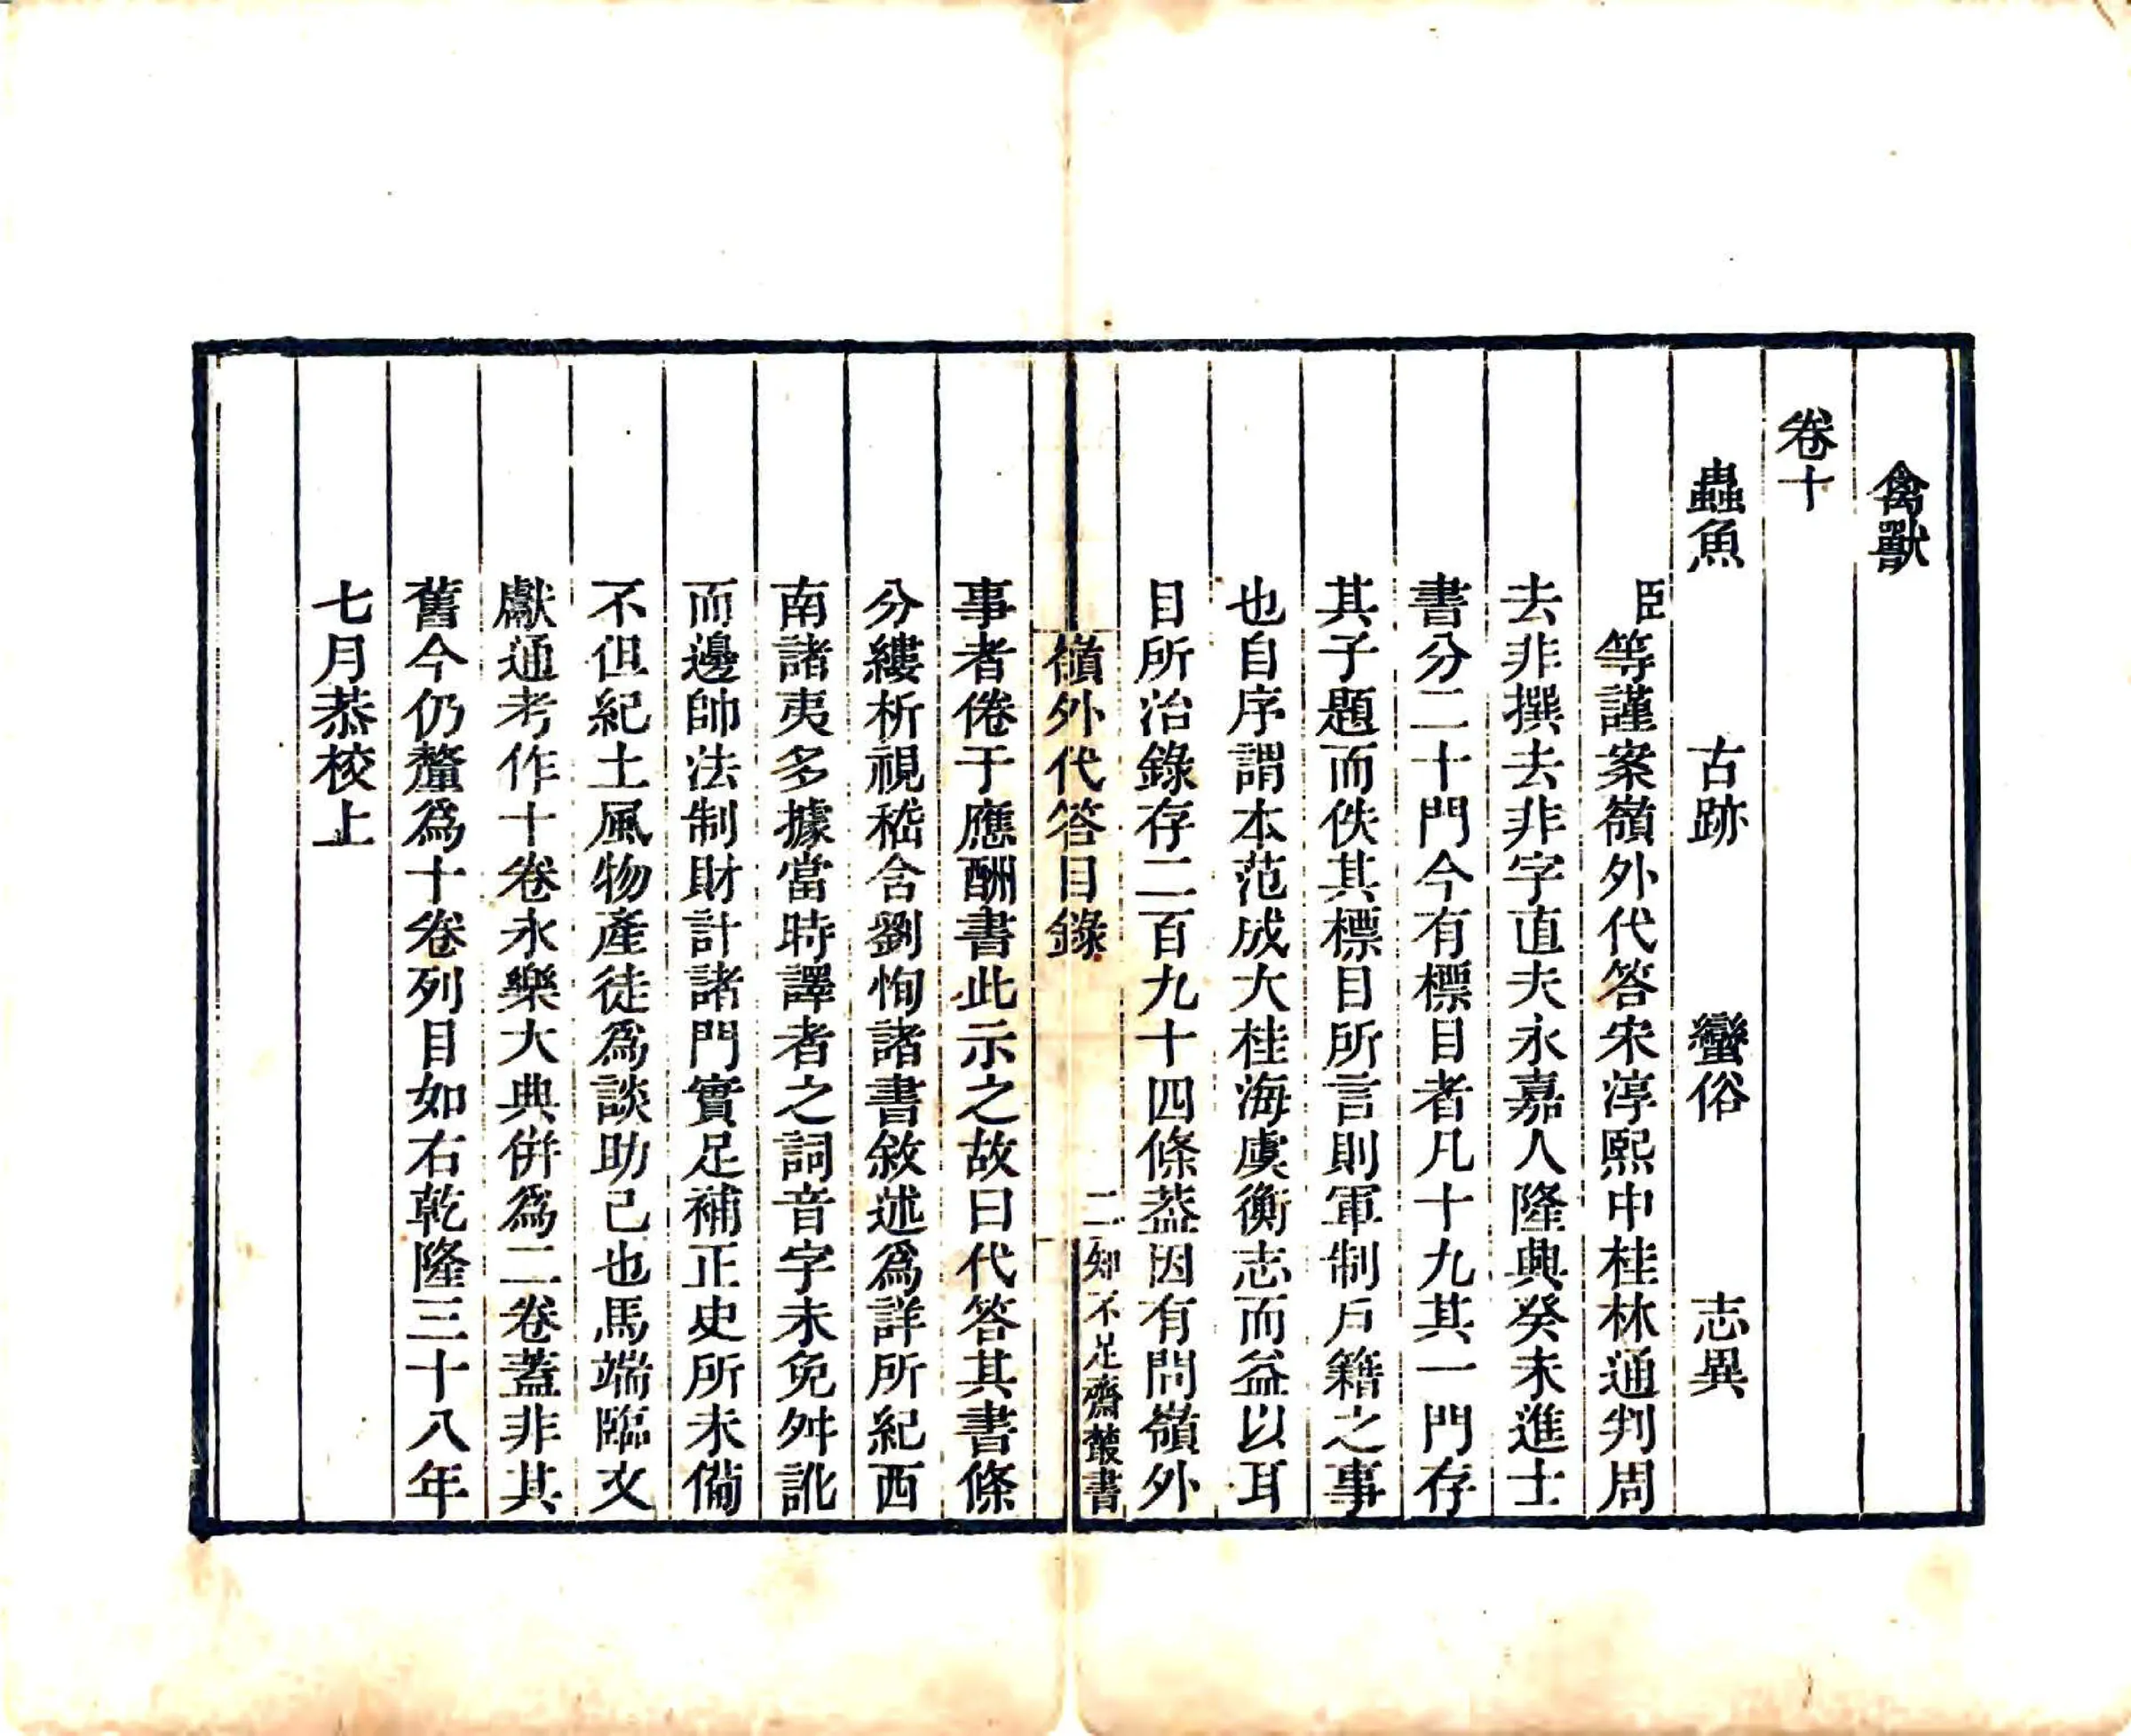 禽獸
卷十
蟲魚　古跡　蠻俗　志異
臣等謹案嶺外代答宋淳熙中桂林通判周
去非撰去非字直夫永嘉人隆興癸未進士
書分二十門今有標目者凡十九其一門存
其子題而佚其標目所言則軍制戶籍之事
也自序謂本范成大桂海虞衡志而益以耳
目所治錄存二百九十四條葢因有問嶺外
嶺外代答目錄　二　知不足齋叢書
事者倦于應酬書此示之故曰代答其書條
分縷析視嵇含劉恂諸書敘述爲詳所紀西
南諸夷多據當時譯者之詞音字未免舛訛
而邊帥法制財計諸門實足補正史所未備
不但紀土風物產徒爲談助己也馬端臨文
獻通考作十卷永樂大典併爲二卷蓋非其
舊今仍釐爲十卷列目如右乾隆三十八年
七月恭校上